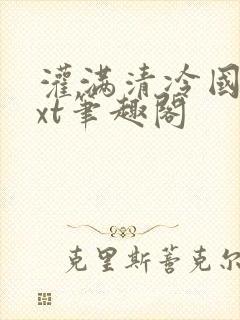 灌满清冷国
xt笔趣阁
克里斯蒂克尔